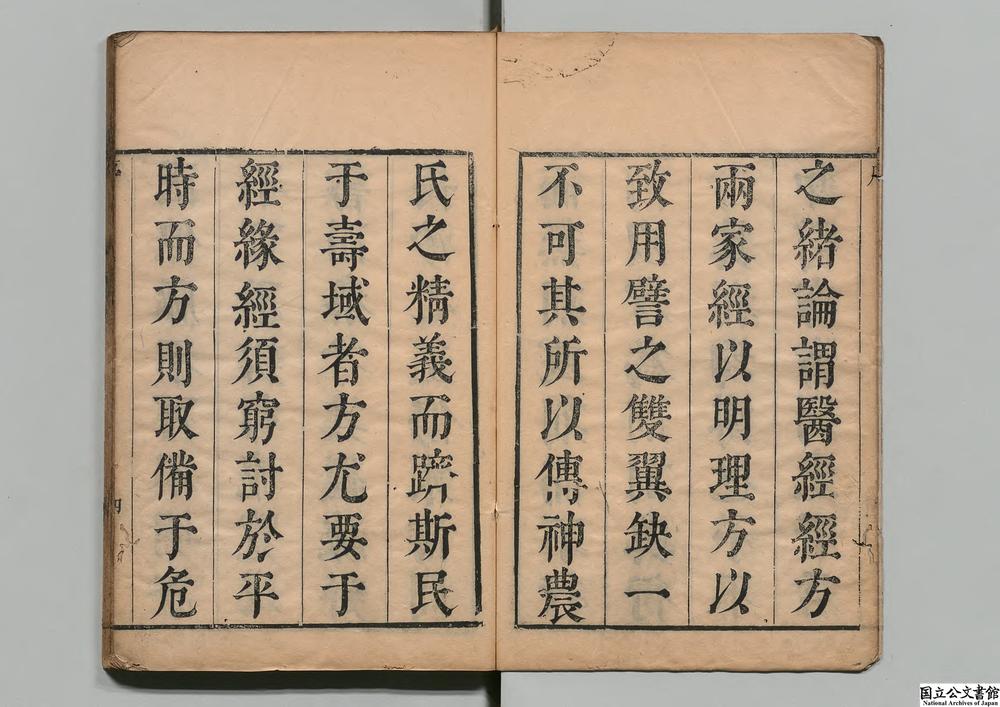 之緒論謂醫經經方
兩家經以明理方以
致用譬之雙翼缺一
不可其所以傳神農
氏之精義而躋斯民
于壽域者方尤要于
經緣經須窮討於平
時而方則取備于危
国立公文書館
National Archives of Japan